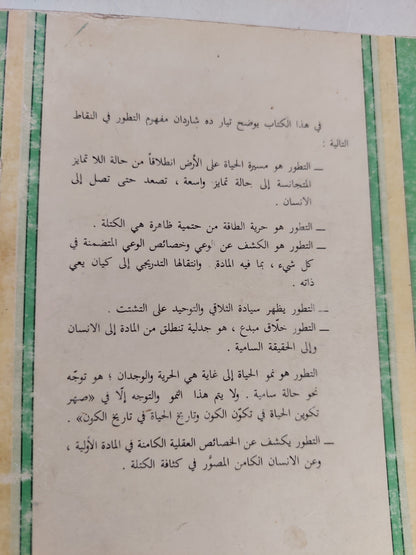 في هذا الكتاب يوضح تيار ده شاردان مفهوم التطور في النقاط
التالية :
ــ التطور هو مسيرة الحياة على الأرض انطلاقاً من حالة اللا تمايز
المتجانسة إلى حالة تمايز واسعة ، تصعد حتى تصل إلى
الانسان .
ــ التطور هو حرية الطاقة من حتمية ظاهرة هي الكتلة .
ــ التطور هو الكشف عن الوعي وخصائص الوعي المتضمنة في
كل شيء ، بما فيه المادة . وانتقالها التدريجي إلى كيان يعي
ذاته .
ــ التطور يظهر سيادة التلاقي والتوحيد على التشتت .
ــ التطور خلّاق مبدع ، هو جدلية تنطلق من المادة إلى الانسان
وإلى الحقيقة السامية .
التطور هو نمو الحياة إلى غاية هي الحرية والوجدان ؛ هو توجّه
نحو حالة سامية . ولا يتم هذا النمو والتوجه إلّا في «صهر
تكوين الحياة في تكوّن الكون وتاريخ الحياة في تاريخ الكون» .
ــ التطور يكشف عن الخصائص العقلية الكامنة في المادة الأولية ،
وعن الانسان الكامن المصوَّر في كثافة الكتلة .